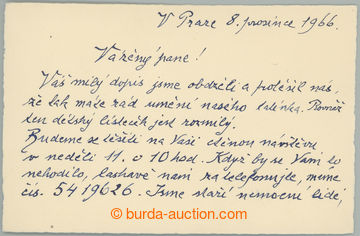 V Praze 8. prosince 1966.
Vážený pane!
Váš milý dopis jsme obdrželi a potěšil nás,
že tak máte rád umění našeho tatínka. Rovněž
ten dětský lísteček jest rozmilý.
Budeme se těšiti na Vaši ctěnou návštěvu
v neděli 11. o 10 hod. Kdyby se Vám to
nehodilo, laskavě nám zatelefonujte, máme
čís. 54 19626. Jsme staří nemocní lidé,
burda-auction.com